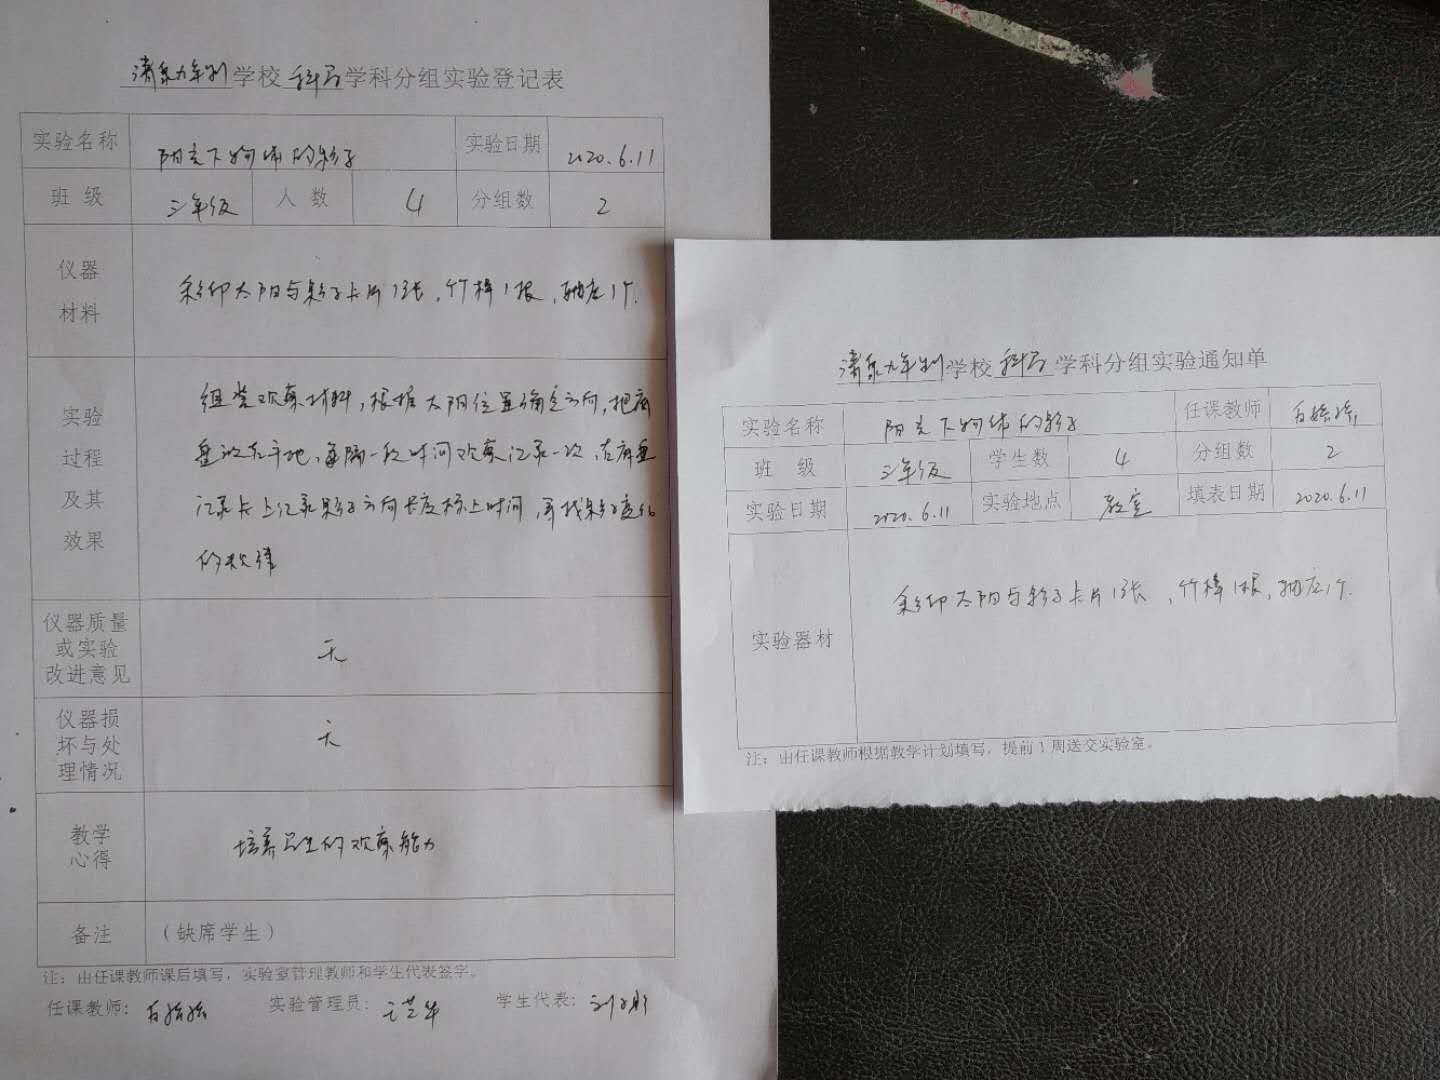 清泉九年制学校科学学科分组实验登记表
实验名称 阳光下物体的影子 实验日期 2020.6.11
班 级 三年级 人 数 4 分组数 2
仪器
材料
彩印太阳与影子卡片1张，竹棒1根，底座1个.
实验
过程
及其
效果
组装观察材料，根据太阳位置确定方向，把底
盘放在平地，每隔一段时间观察记录一次，在底盘
记录卡上记录影子方向长度标上时间，寻找影子变化
的规律
仪器质量
或实验
改进意见
无
仪器损
坏与处
理情况
无
教学
心得
培养学生的观察能力
备注 （缺席学生）
注：由任课教师课后填写，实验室管理教师和学生代表签字。
任课教师： 实验管理员： 学生代表：
清泉九年制学校科学学科分组实验通知单
实验名称 阳光下物体的影子 任课教师
班 级 三年级 学生数 4 分组数 2
实验日期 2020.6.11 实验地点 教室 填表日期 2020.6.11
实验器材
彩印太阳与影子卡片1张，竹棒1根，底座1个.
注：由任课教师根据教学计划填写，提前1周送交实验室。